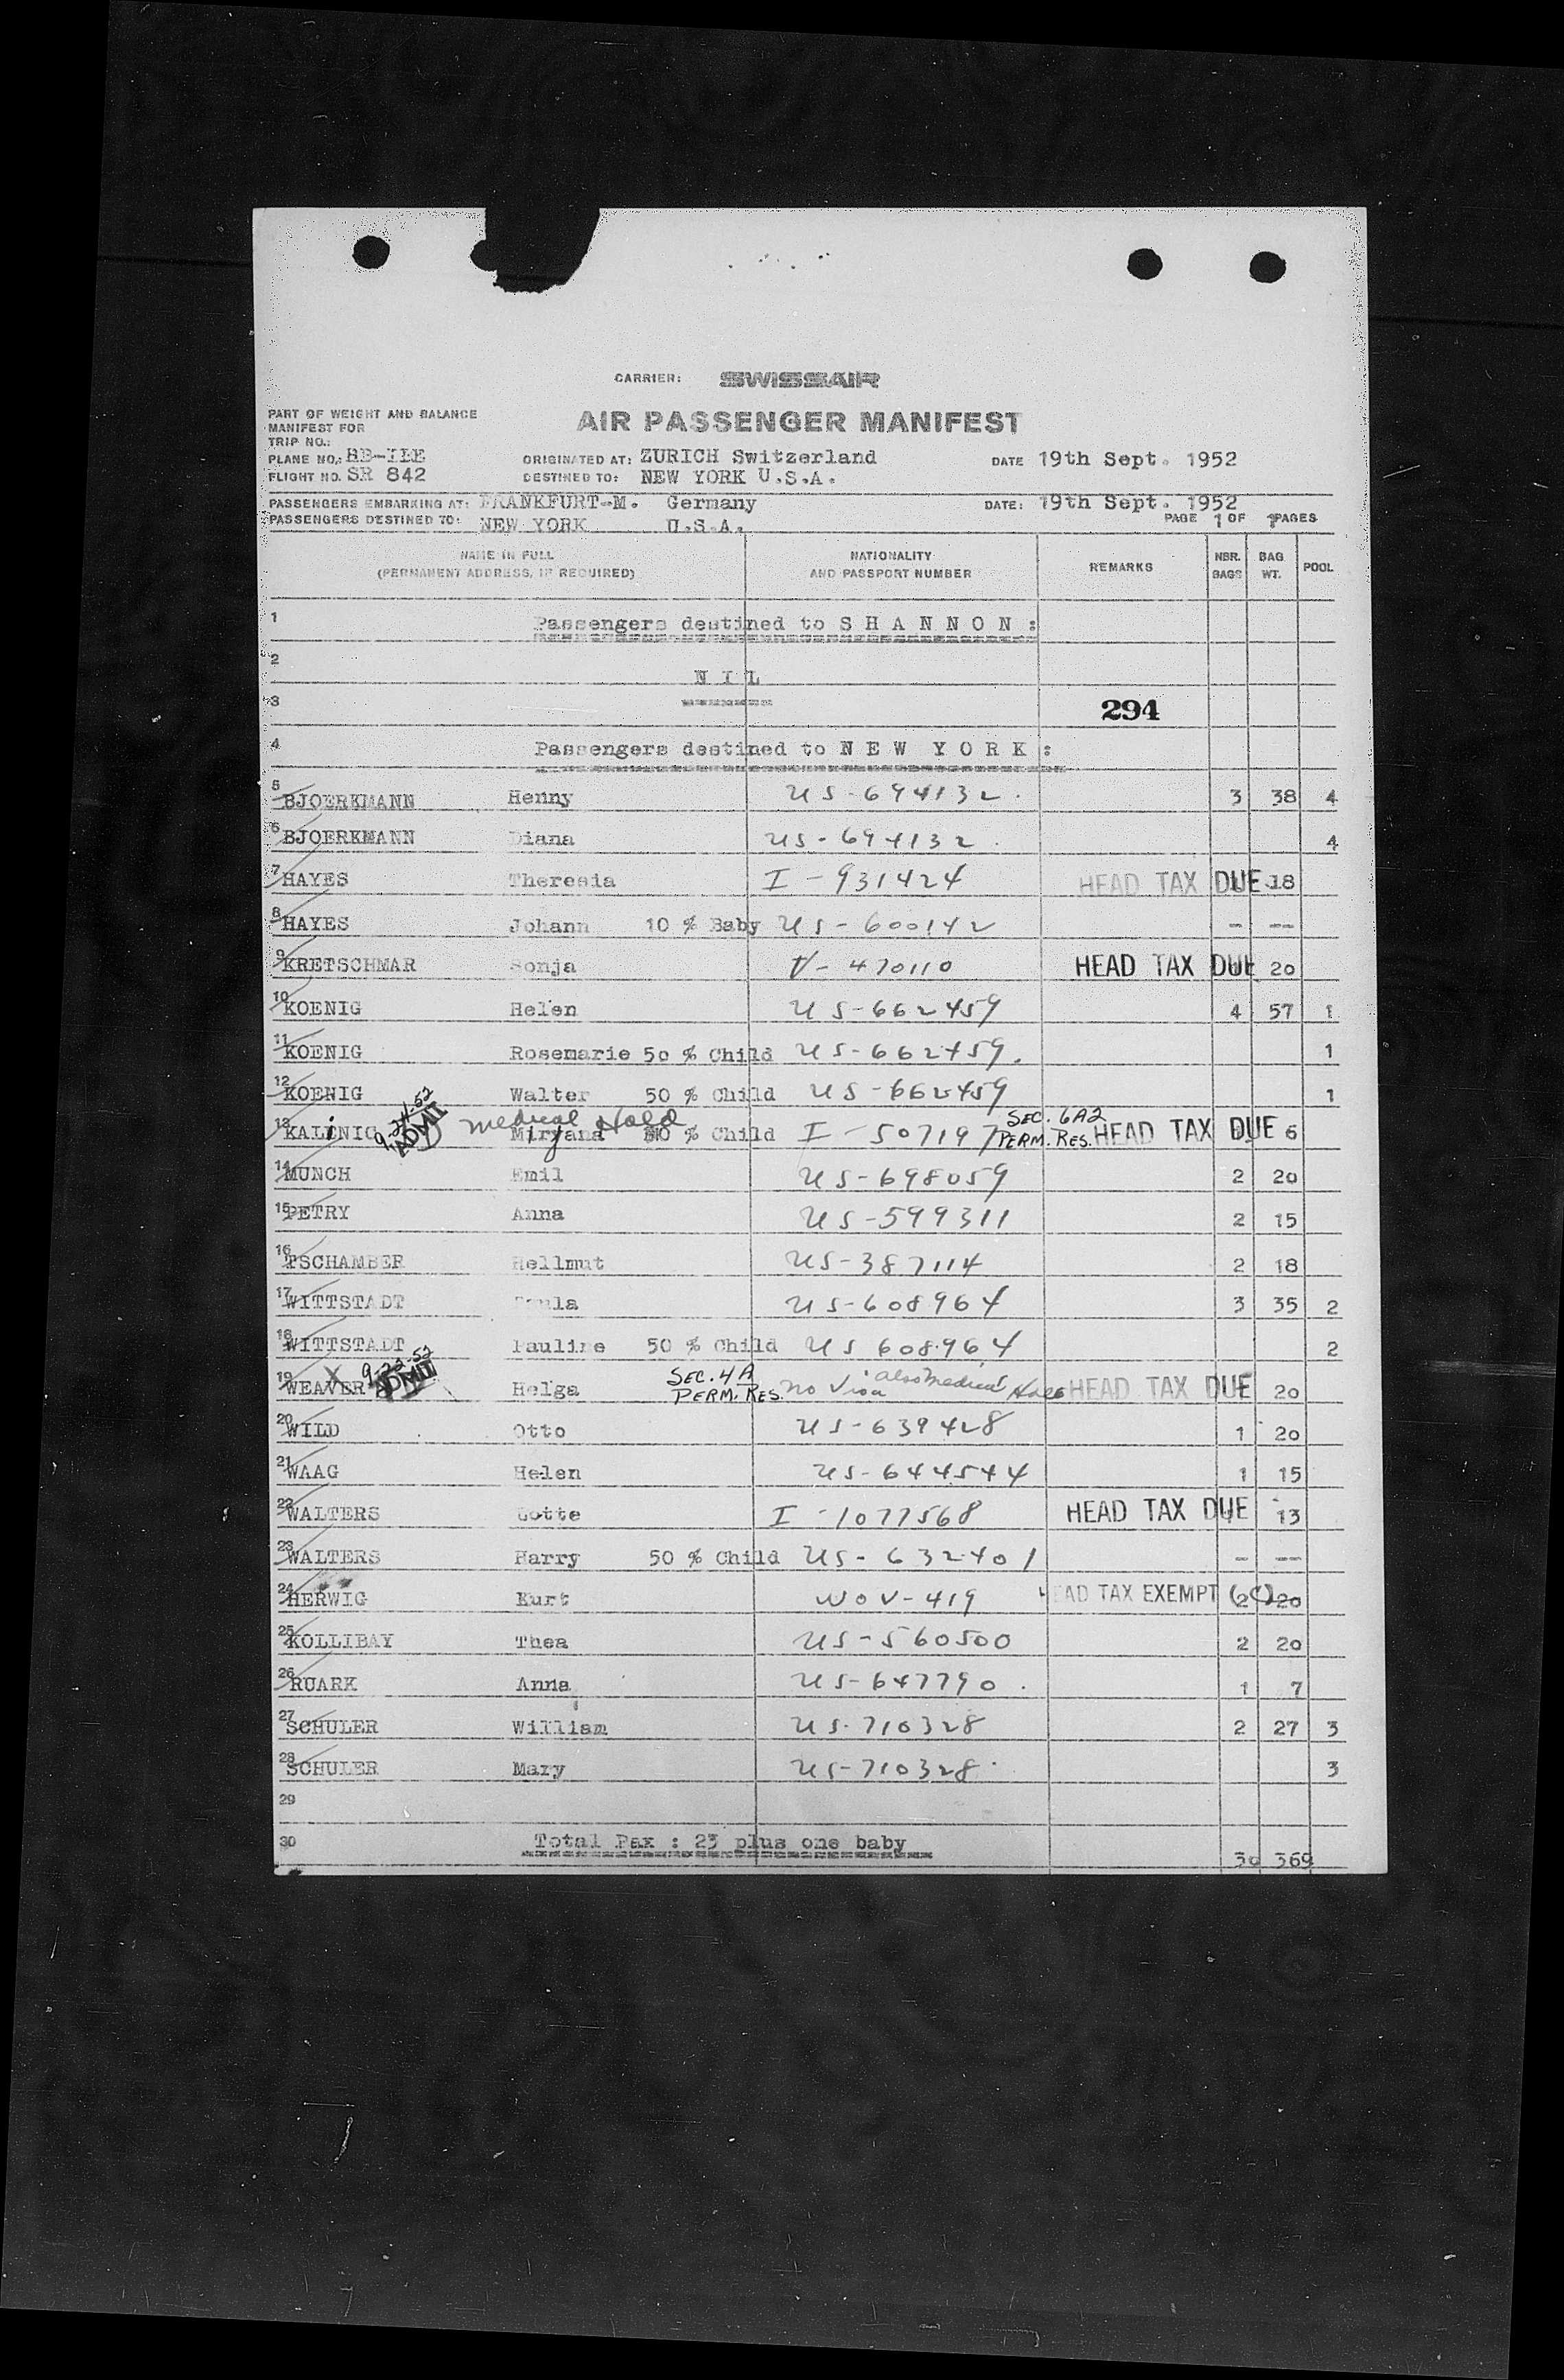 CARRIER: SWISSAIR
AIR PASSENGER MANIFEST
PART OF WEIGHT AND BALANCE
MANIFEST FOR
TRIP NO.:
PLANE NO.: HB-ILE ORIGINATED AT: ZURICH Switzerland DATE 19th Sept. 1952
FLIGHT NO. SR 842 DESTINED TO: NEW YORK U.S.A.
PASSENGERS EMBARKING AT: FRANKFURT-M. Germany DATE: 19th Sept. 1952
PASSENGERS DESTINED TO: NEW YORK U.S.A. PAGE 1 OF 1 PAGES
NAME IN FULL NATIONALITY REMARKS NBR. BAG POOL
(PERMANENT ADDRESS, IF REQUIRED) AND PASSPORT NUMBER BAGS WT.
1 Passengers destined to S H A N N O N :
2 N I L
3 294
4 Passengers destined to N E W Y O R K :
5 BJOERKMANN Henny US-694132 3 38 4
6 BJOERKMANN Diana US-694132 4
7 HAYES Theresia I-931424 HEAD TAX DUE 18
8 HAYES Johann 10 % Baby US-600142 - --
9 KRETSCHMAR Sonja V-470110 HEAD TAX DUE 20
10 KOENIG Helen US-662459 4 57 1
11 KOENIG Rosemarie 50 % Child US-662459. 1
12 KOENIG Walter 50 % Child US-662459 1
9-24-52 ADMIT medical Hold SEC. 6A2
13 KALINIC Miryana % Child I-507197 PERM. RES. HEAD TAX DUE 6
14 MUNCH Emil US-698059 2 20
15 PETRY Anna US-599311 2 15
16 TSCHAMBER Hellmut US-387114 2 18
17 WITTSTADT US-608964 3 35 2
18 WITTSTADT Pauline 50 % Child US 608964 2
X 9-22-52 ADMIT SEC. 4A also medical Hold
19 WEAVER Helga PERM. RES. no Visa HEAD TAX DUE 20
20 WILD Otto US-639428 1 20
21 WAAG Helen US-644544 1 15
22 WALTERS Lotte I-1077568 HEAD TAX DUE 13
23 WALTERS Harry 50 % Child US-632401 - --
24 HERWIG Kurt WOV-419 HEAD TAX EXEMPT 2 20
25 KOLLIBAY Thea US-560500 2 20
26 RUARK Anna US-647790. 1 7
27 SCHULER William US-710328 2 27 3
28 SCHULER Mary US-710328 3
29
30 Total Pax : 23 plus one baby 30 369